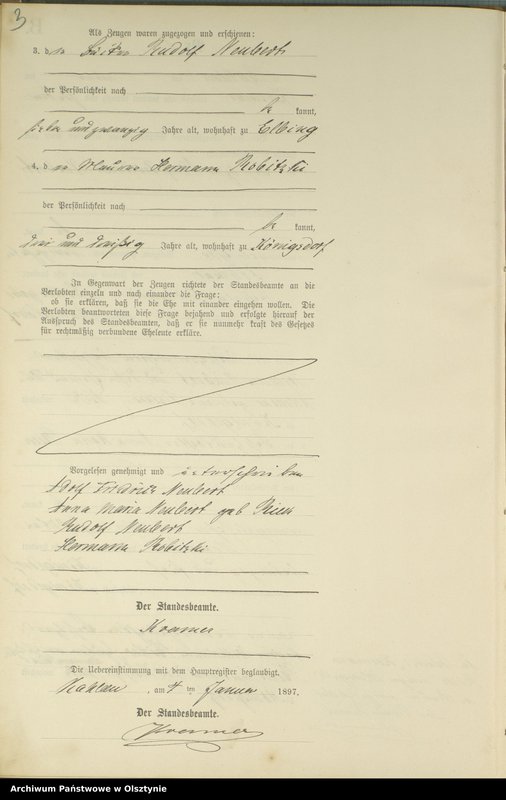 3
Als Zeugen waren zugezogen und erschienen:
3. der Rudolf Neubert
der Persönlichkeit nach
be kannt,
sieben und zwanzig Jahre alt, wohnhaft zu Elbing
4. der Maurer Hermann Robitzki
der Persönlichkeit nach
be kannt,
drei und dreißig Jahre alt, wohnhaft zu Königsdorf
In Gegenwart der Zeugen richtete der Standesbeamte an die
Verlobten einzeln und nach einander die Frage:
ob sie erklären, daß sie die Ehe mit einander eingehen wollen. Die
Verlobten beantworteten diese Frage bejahend und erfolgte hierauf der
Ausspruch des Standesbeamten, daß er sie nunmehr kraft des Gesetzes
für rechtmäßig verbundene Eheleute erkläre.
Vorgelesen genehmigt und unterschrieben
Adolf Friedrich Neubert
Anna Maria Neubert geb
Rudolf Neubert
Hermann Robitzki
Der Standesbeamte.
Kramer
Die Uebereinstimmung mit dem Hauptregister beglaubigt.
am 4 ten Januar 1897.
Der Standesbeamte.
Kramer
Archiwum Państwowe w Olsztynie